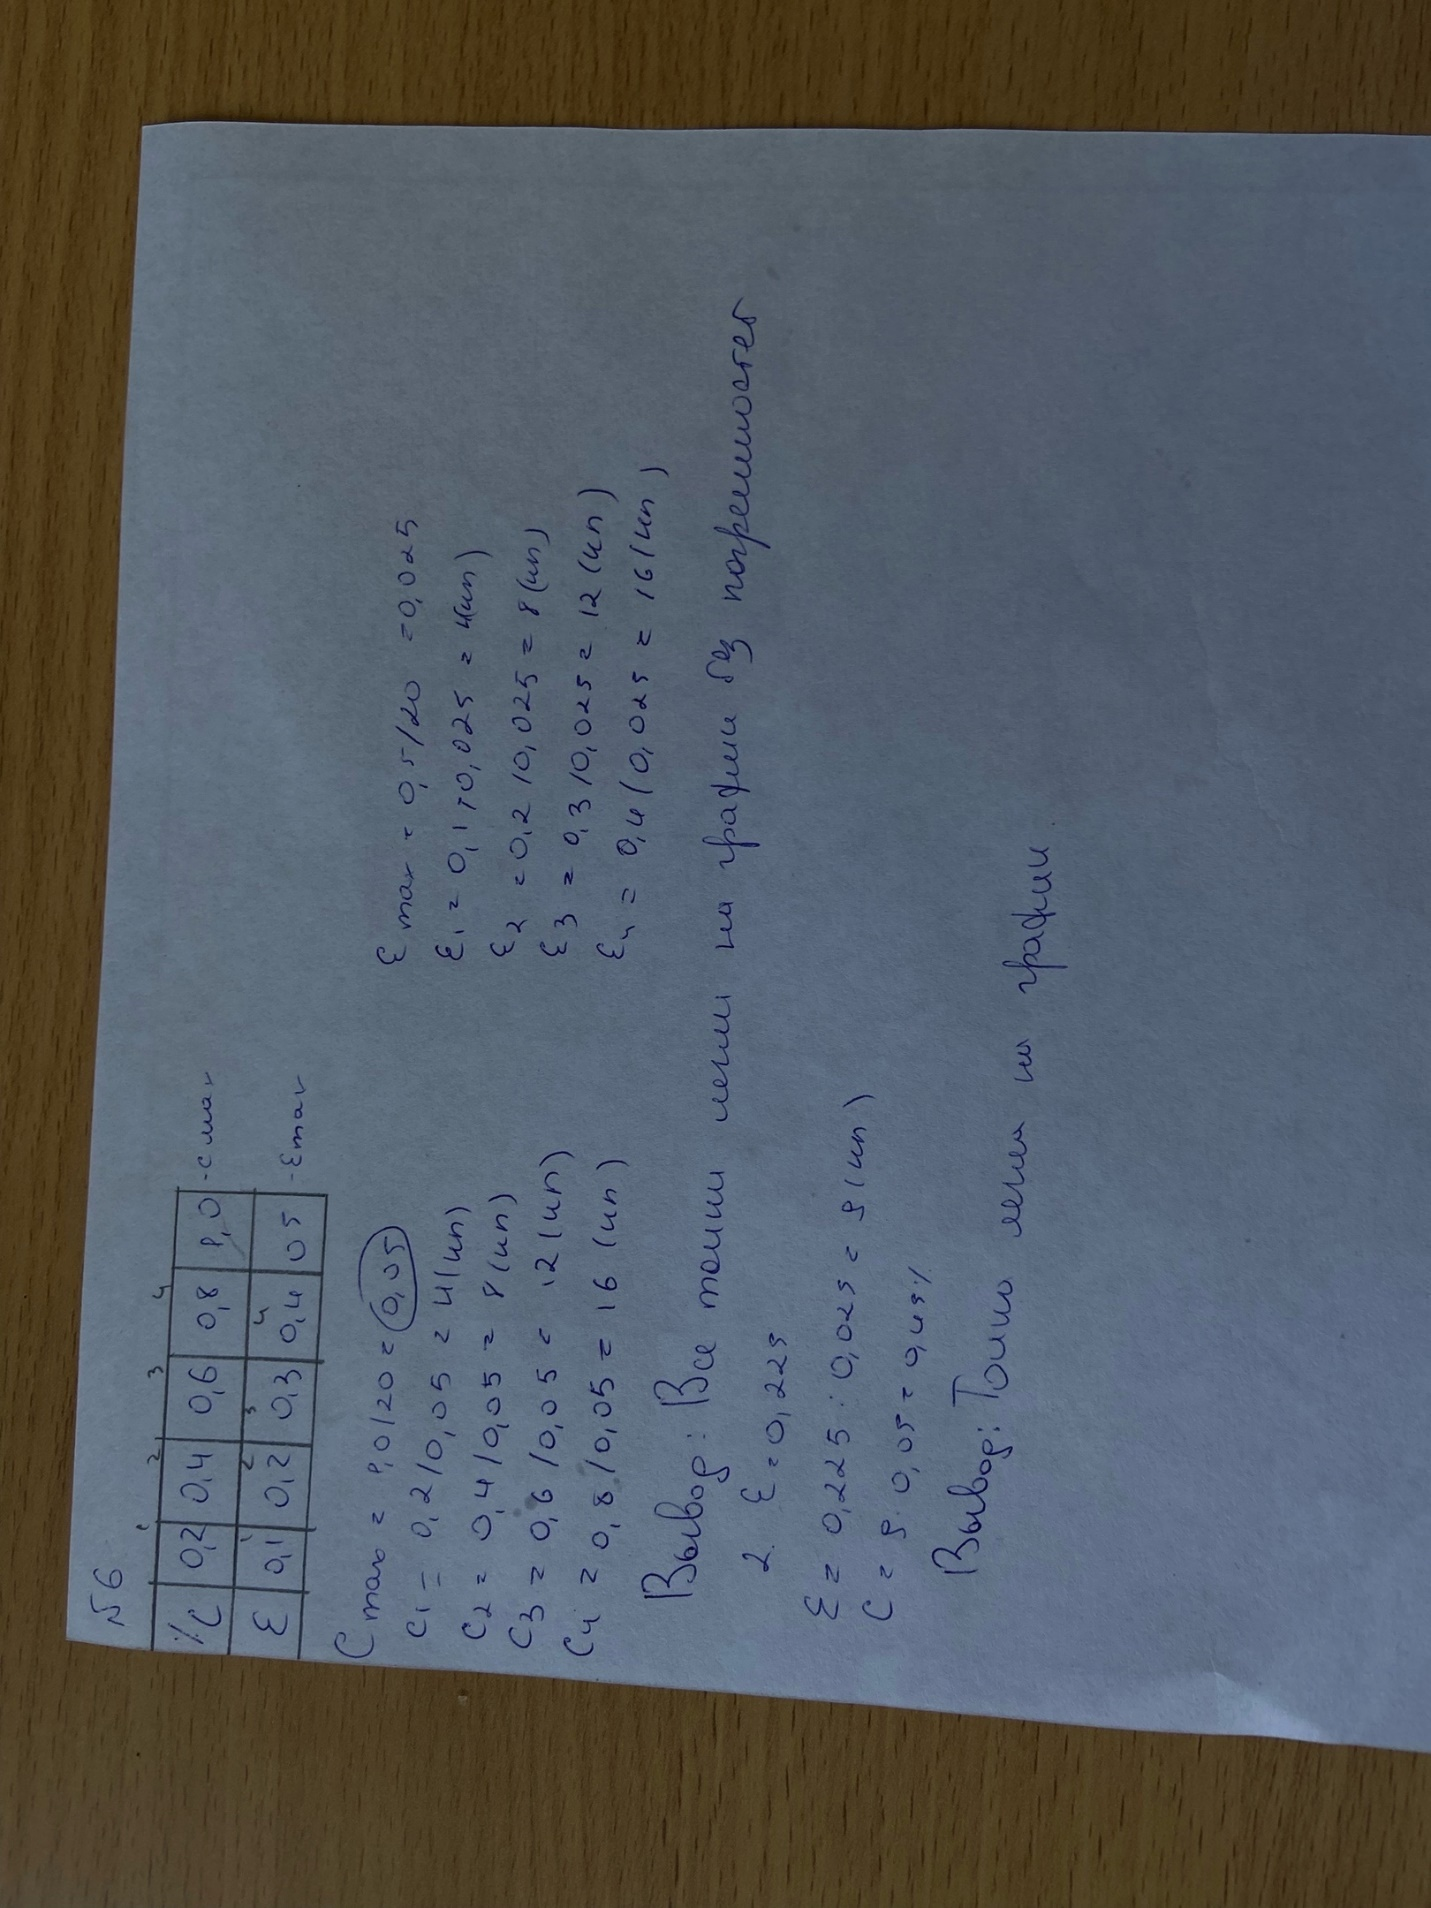 №6
1 2 3 4
%C 0,2 0,4 0,6 0,8 1,0 - C мах
1 2 3 4
Ɛ 0,1 0,2 0,3 0,4 0,5 - Ɛ max
C max = 1,0/20 = 0,05
C1 = 0,2/0,05 = 4(кл)
C2 = 0,4/0,05 = 8(кл)
C3 = 0,6/0,05 = 12(кл)
C4 = 0,8/0,05 = 16(кл)
Ɛ max = 0,5/20 = 0,025
Ɛ1 = 0,1/0,025 = 4(кл)
Ɛ2 = 0,2/0,025 = 8(кл)
Ɛ3 = 0,3/0,025 = 12(кл)
Ɛ4 = 0,4/0,025 = 16(кл)
Вывод: Все точки легли на график без погрешностей
2. Ɛ = 0,225
Ɛ = 0,225 : 0,025 = 9(кл)
C = 9 · 0,05 = 0,45%
Вывод: Точно легла на график